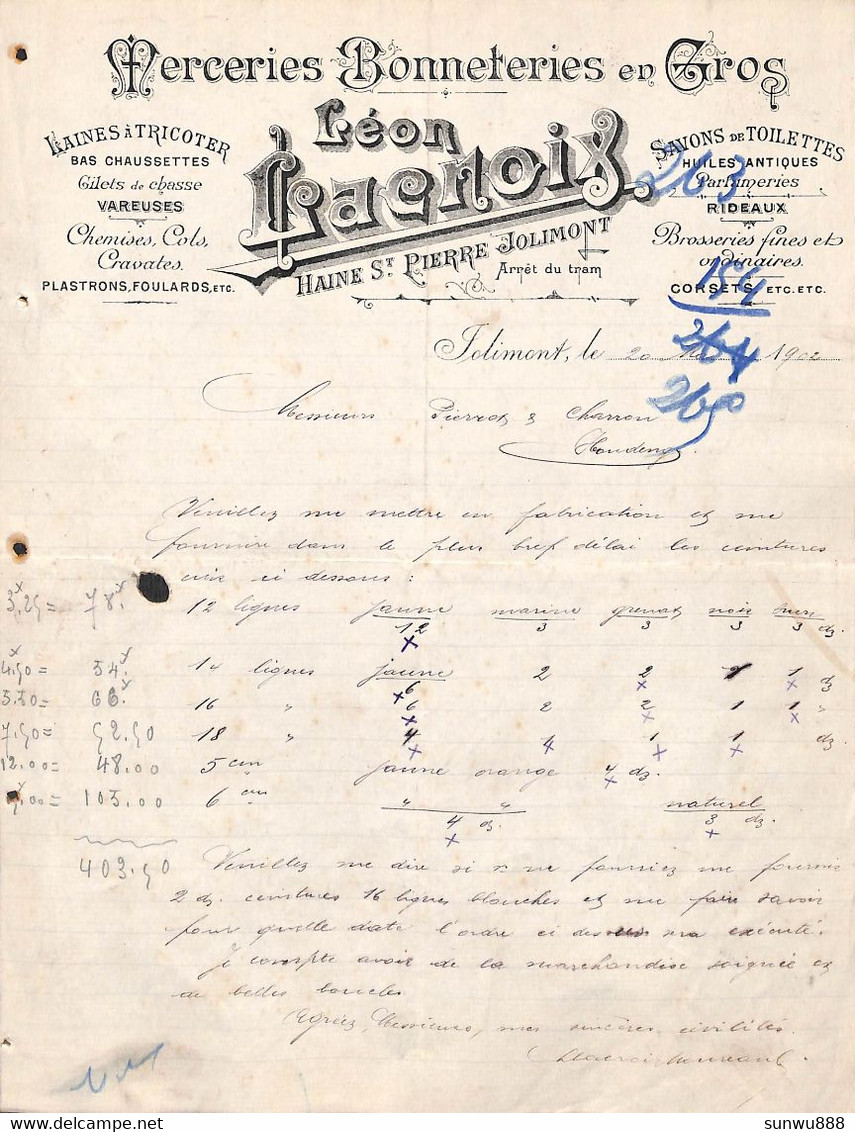 Merceries Bonneteries en Gros
Léon
Lacroix
HAINE ST. PIERRE JOLIMONT
Arrêt du tram
LAINES À TRICOTER
BAS CHAUSSETTES
Gilets de chasse
VAREUSES
Chemises, Cols,
Cravates.
PLASTRONS, FOULARDS, ETC.
SAVONS DE TOILETTES
HUILES ANTIQUES
Parfumeries
RIDEAUX
Brosseries fines et
ordinaires.
CORSETS ETC. ETC.
263
154
264
260
Jolimont, le 20 1902
Messieurs Pierrot & Charron
Houdeng
Veuillez me mettre en fabrication et me
fournir dans le plus bref délai les ceintures
ci dessous :
3,25 = 78. 12 lignes jaune marine grenat noir
12 3 3 3 3 dz
4.50 = 54. 14 lignes jaune 2 2 1 dz
6
5.50 = 66. 16 " 6 2 2 1 1 "
7.50 = 52.50 18 " 4 1 1 dz
12.00 = 48.00 5 cm jaune orange 4 dz.
103.00 6 cm " " naturel
4 dz. 3 dz.
403.50
Veuillez me dire si ne pourriez me fournir
2 dz. ceintures 16 lignes blanches et me faire savoir
pour quelle date l'ordre ci dessus sera exécuté.
Je compte avoir de la marchandise soignée et
de belles boucles
Agréez, Messieurs, mes sincères civilités.
sunwu888